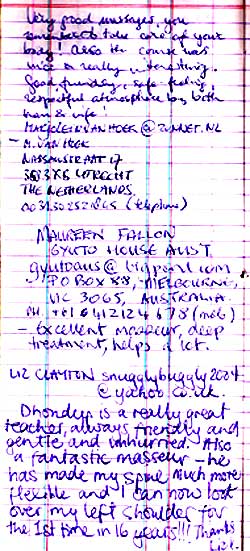 Very good massages, you
remembered to take care of your
body! Also the course was
nice & really interesting.
Good, friendly, safe feeling,
respectful atmosphere by both
man & wife!
@ZONNET.NL
M. VAN HOEK
NASSAUSTRAAT 17
UTRECHT
THE NETHERLANDS
(telephone)
MAUREEN FALLON
GYUTO HOUSE AUST.
@bigpond.com
PO BOX 58, MELBOURNE,
VIC 3065, AUSTRALIA.
PH. +61 412124678 (mob)
- Excellent masseur, deep
treatment, helps a lot.
LIZ CLAYTON snugglybuggly2024
@yahoo.co.uk.
Dhondup is a really great
teacher, always friendly and
gentle and unhurried. Also
a fantastic masseur - he
has made my spine much more
flexible and I can now look
over my left shoulder for
the 1st time in 16 years!!! Thanks
Liz.